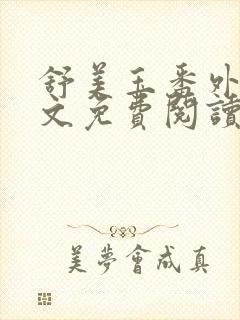 舒美玉番外
文免費閱讀
美夢會成真